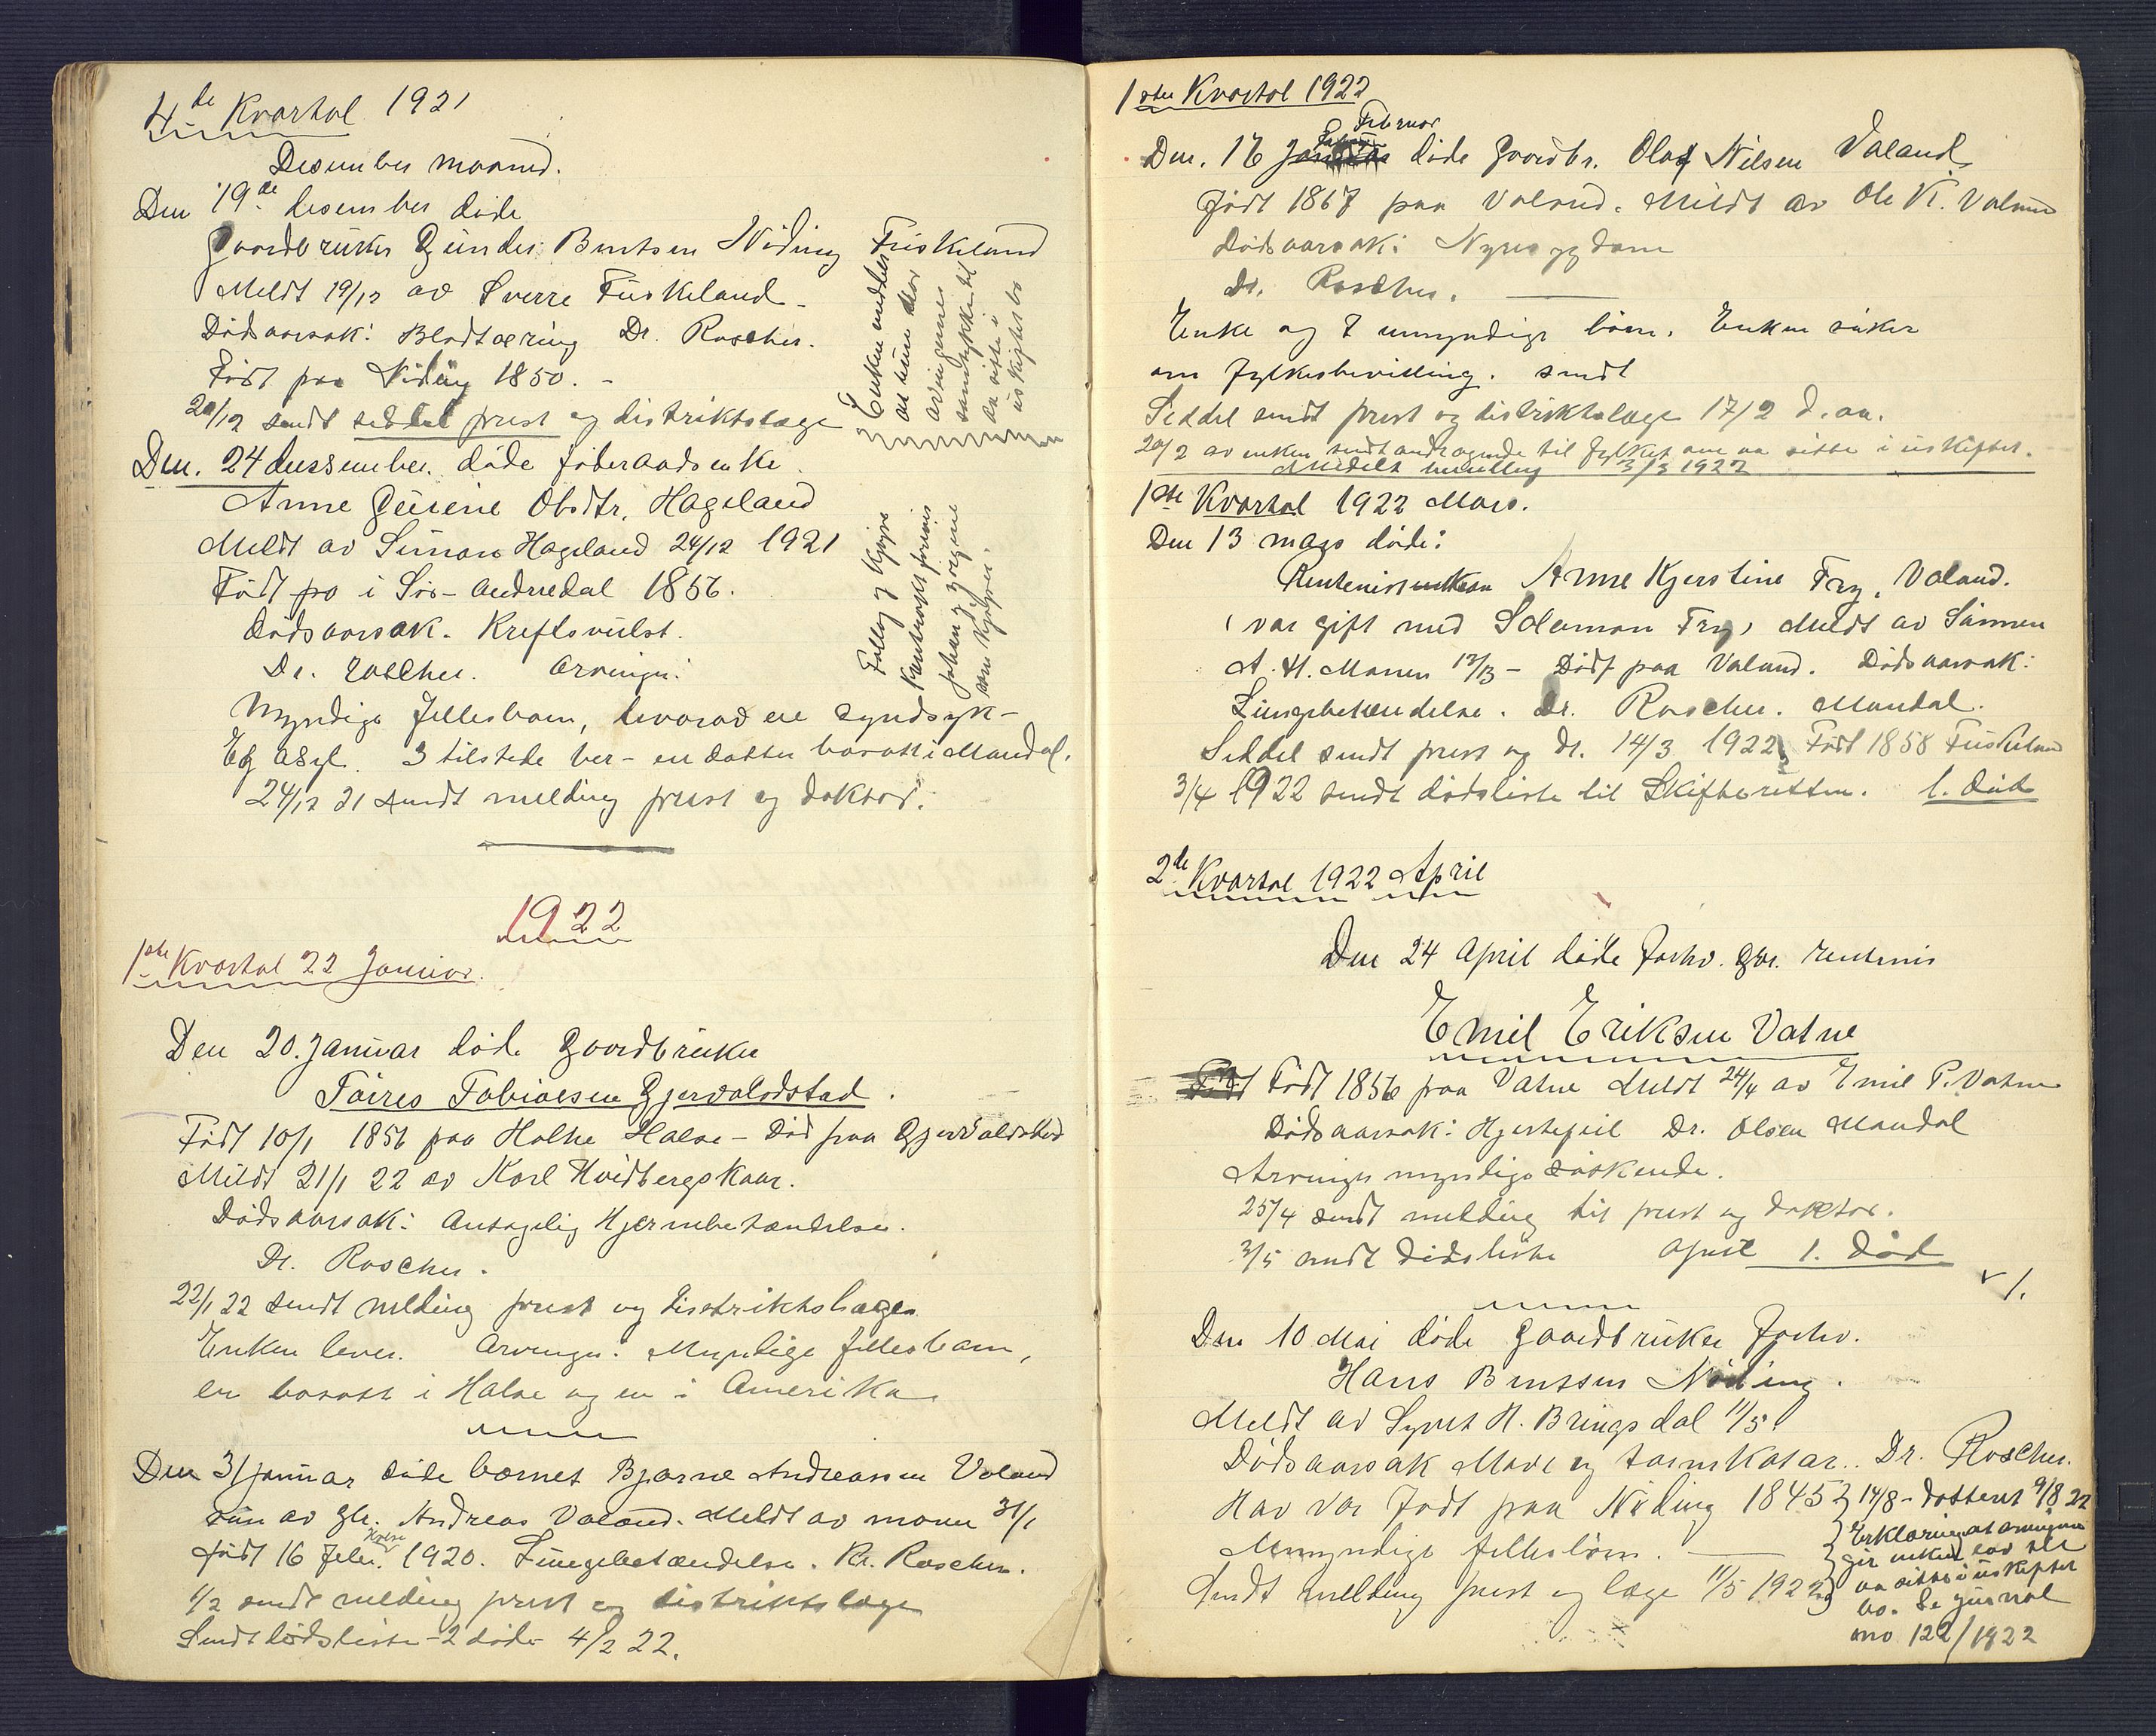 4de Kvartal 1921
Desember maaned.
Den 19de desember døde
gaardbruker Gunder Bentsen Nøding Fuskeland
Meldt 19/12 av Sverre Fuskeland
Dødsaarsak: Blodtæring Dr. Roscher.
Født paa Nøding 1850. -
20/12 sendt seddel prest og distriktslæge
Enken
at hun har
arvingernes
samtykke til
at sitte i
uskiftet bo
Den. 24 dessember. døde føderaadsenke
Anne Gurine Olsdtr. Hageland
Meldt av Simon Hageland 24/12 1921
Født po i Sør-Audnedal 1856.
Dødsaarsak. Kreftsvulst.
Dr. Roscher. Arvinger:
Myndige fellesbarn, hvorav en syndsyk-
Eg asyl. 3 tilstede her - en datter bosatt i Mandal.
24/12 21 sendt melding prest og doktor.
1922
1ste Kvartal 22 Januar.
Den 20. januar døde Gaardbruker
Tøires Tobiassen Gjervoldstad.
Født 10/1 1856 paa Holte Halse - Død paa Gjervoldstad
Meldt 21/1 22 av Karl Hvidbergskaar.
Dødsaarsak: Antagelig Hjernebetændelse.
Dr. Roscher.
22/1 22 sendt melding prest og distriktslæge
Enken lever. Arvinger: Myndige fellesbarn,
en bosatt i Halse og en i Amerika
Den 31 januar døde barnet Bjarne Andreassen Valand
søn av gbr. Andreas Valand. Meldt av moren 31/1
født 16 febr. Halse 1920. Lungebetændelse. Dr. Roscher.
1/2 sendt melding prest og distriktslæge
Sendt dødsliste - 2 døde 4/2 22.
1ste Kvartal 1922
Februar
Den. 16 døde gaardbr. Olaf Nilsen Valand
født 1867 paa Valand. Meldt av Ole Kr. Valand
Dødsaarsak: Nyresygdom
Dr. Roscher.
Enke og 7 umyndige børn. Enken søker
om fylkesbevilling. sendt
Seddel sendt prest og distriktslæge 17/2 d. aa.
20/2 av enken sendt andragende til fylket om aa sitte i uskiftet.
3/3 1922
1ste Kvartal 1922 Mars.
Den 13 mars døde:
Rentenistenken Anne Kjerstine Fry, Valand.
(var gift med Salomon Fry) Meldt av Sønnen
A. H. Monen 13/3 - Død paa Valand. Dødsaarsak:
Lungebetændelse. Dr. Roscher. Mandal.
Seddel sendt prest og dr. 14/3 1922. Født 1858 Fuskeland
3/4 1922 sendt dødsliste til Skifteretten. 1. død
2de Kvartal 1922 April
Den 24 april døde forhv. gbr. rentenis
Emil Eriksen Vatne
Født Født 1856 paa Vatne Meldt 24/4 av Emil P. Vatne
Dødsaarsak: Hjertefeil Dr. Olsen Mandal
Arvinger myndige søskende.
25/4 sendt melding til prest og doktor.
3/5 sendt dødsliste April 1. død
v 1.
Den 10 Mai døde gaardbruker forhv.
Hans Bentsen Nøding.
Meldt av Syvert H. Bringsdal 11/5
Dødsaarsak Mave og tarmkatar. Dr. Roscher.
Hav var født paa Nøding 1845
Myndige fellesbørn.
Sendt melding prest og læge 11/5 1922
14/8 - datteren 9/8 22
Erklæring at arvingene
gir enken lov til
aa sitte i uskiftet
bo. Se jurnal
no 122/1922